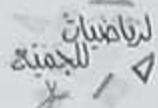 لرياضيات
للجميع